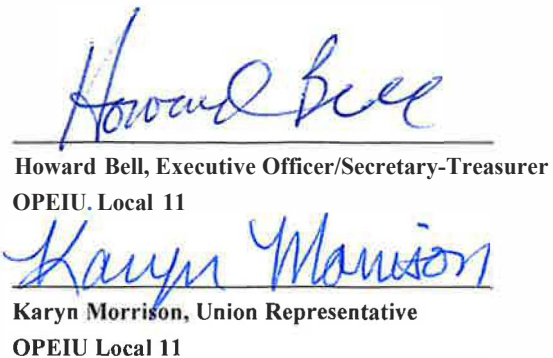 Howard Bell
Howard Bell, Executive Officer/Secretary-Treasurer
OPEIU. Local 11
Karyn Morrison
Karyn Morrison, Union Representative
OPEIU Local 11